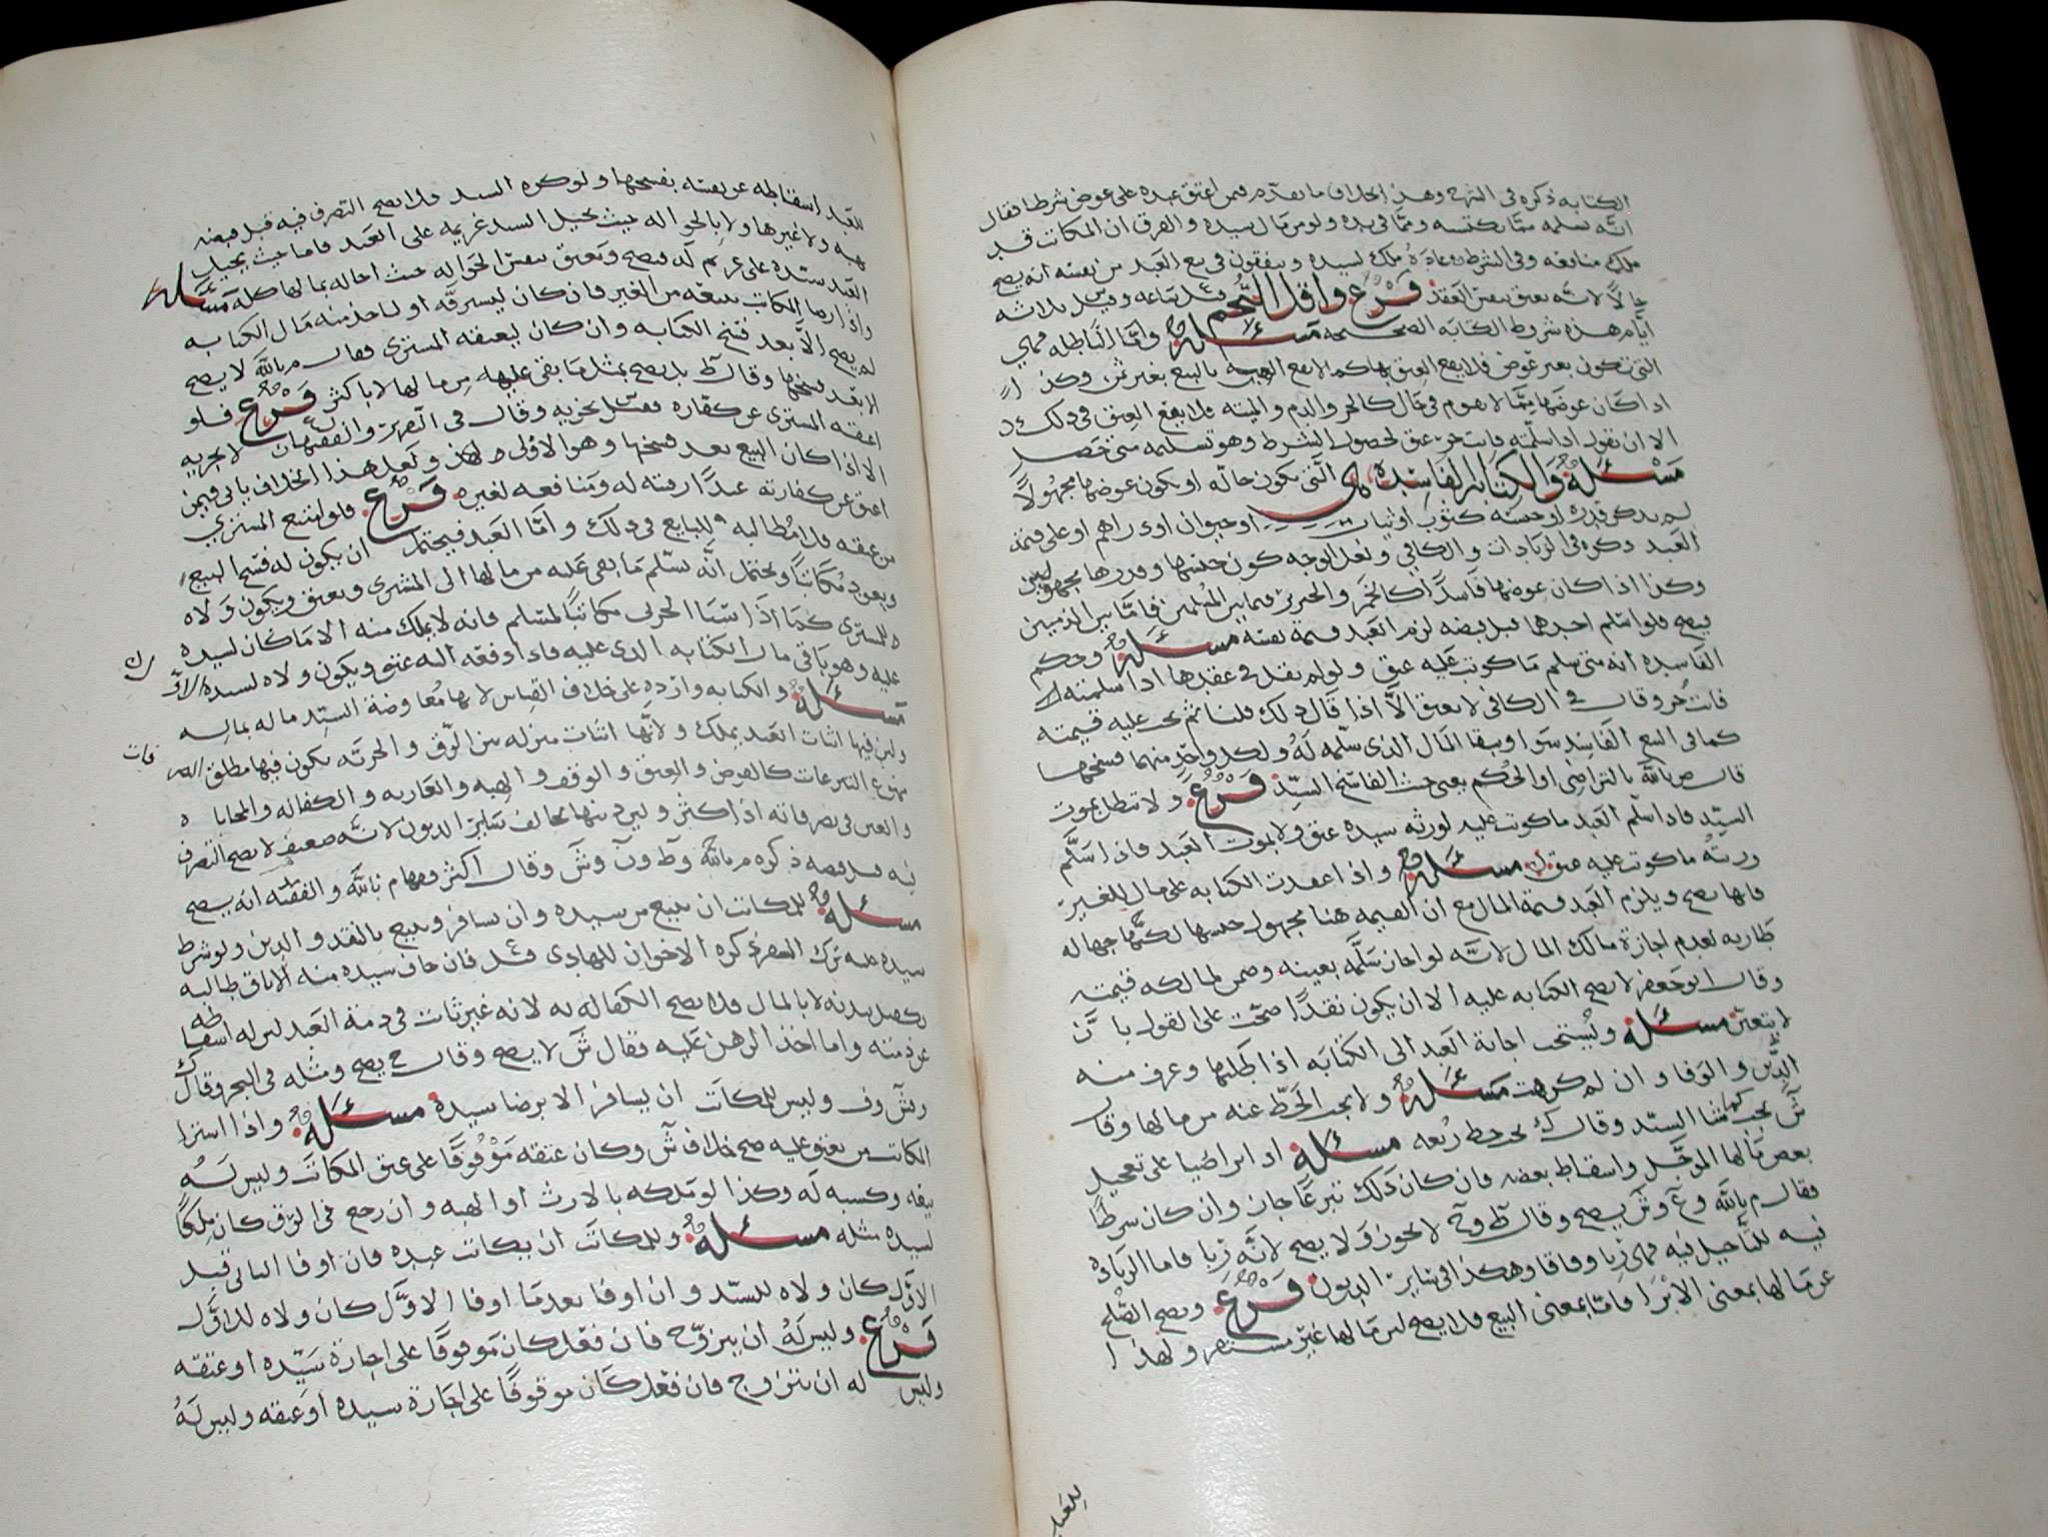 الكتابه ذكره في الشرح وهذا بخلاف ما تقدم فيمن اعتق عبده على عوض شرطا فقال
انه تسلمه مما يكتسبه ومما في يده ولو من مال سيده والفرق ان المكاتب قد
ملك منافعه وفي الشرط منافعه ملك لسيده ويتفقون في بيع العبد من نفسه انه يصح
حالا لانه يعتق بنفس العقد فرع واقل النجم قيل ساعه وقيل ثلاثه
ايام هذه شروط الكتابه الصحيحه مسئلة واما الباطله فهي
التي تكون بغير عوض فلا يقع العتق بها كما لا يقع البيع بغير ثمن وكذا
اذا كان عوضها مما لا يقوم في حال كالحر والدم والميته فلا يقع العتق في ذلك
الا ان يقول اذا سلمته فانت حر عتق لحصول الشرط وهو تسلمه متى حصل
مسئلة والكتابة الفاسدة هي التي تكون حاله او يكون عوضها مجهولا
لم يذكر قدره او جنسه كثوب او ثياب او حيوان او دراهم او على قيمة
العبد ذكره في الزيادات والكافي ولعل الوجه كون جنسها وقدرها مجهولين
وكذا اذا كان عوضها فاسدا كالخمر والخنزير فيما بين المسلمين فاما بين الذميين
فيصح فلو اسلم احدهما قبل قبضه لزم العبد قيمة نفسه مسئلة وحكم
الفاسده انه متى سلم ما كوتب عليه عتق ولو لم يقل في عقدها اذا سلمته
فانت حر وقال في الكافي لا يعتق الا اذا قال ذلك قلنا ثم يجب عليه قيمته
كما في البيع الفاسد سوا ويبقا المال الذي سلمه له ولكل واحد منهما فسخها
قال م بالله بالتراضي او الحكم يعني حيث الفاسخ السيد فرع ولا تبطل بموت
السيد فاذا سلم العبد ما كوتب عليه لورثه سيده عتق ولا بموت العبد فاذا سلم
ورثته ما كوتب عليه عتق مسئلة واذا عقدت الكتابه على مال للغير
فانها تصح ويلزم العبد قيمة المال مع ان القيمه هنا مجهول جنسها لكنها جهاله
طاريه لعدم اجازة مالك المال لانه لو اجاز سلمه بعينه وضمن لمالكه قيمته
وقال ابو جعفر لا يصح الكتابه عليه الا ان يكون نقدا صحت على القول بان
لا يتعين مسئلة ويستحب اجابة العبد الى الكتابه اذا طلبها وعرف منه
الدين والوفا وان لم كرهت مسئلة ولا يجب الحط عنه من مالها وقال
ش يجب كما شا السيد وقال ك يجب حط ربعه مسئلة اذا تراضيا على تعجيل
بعض مالها الموجل واسقاط بعضه فان كان ذلك تبرعا جاز وان كان شرطا
فقال م بالله وع وش يصح وقال ط وح لا يجوز ولا يصح لانه ربا فاما الزياده
فيه للتأجيل فيه فهي ربا وفاقا وهكذا في سائر الديون فرع ويصح الصلح
عن مالها بمعنى الابرا فاما بمعنى البيع فلا يصح لان مالها غير مستقر ولهذا
للعبد
للعبد اسقاطه عن نفسه بفسخها ولو كره السيد فلا يصح التصرف فيه قبل قبضه
بهبه ولا غيرها ولا بالحواله حيث يحيل السيد غريمه على العبد فاما حيث يحيل
العبد سيده على غريم له فيصح ويعتق بنفس الحواله حيث احاله بمالها كله مسئلة
واذا اراد المكاتب بيعه من الغير فان كان ليسترقه او لياخذ منه مال الكتابه
لم يصح الا بعد فسخ الكتابه وان كان ليعتقه المشتري فقال م بالله لا يصح
الا بعد فسخها وقال ط بل يصح بمثل ما بقي عليه من مالها لا باكثر فرع فلو
اعتقه المشتري عن كفاره فقيل تجزيه وقال في التقرير والفقيهان لا تجزيه
الا اذا كان البيع بعد فسخها وهو الاولى ولعل هذا الخلاف ياتي فيمن
اعتق عن كفارته عبدا رقبته له ومنافعه لغيره فرع فلو امتنع المشتري
من عتقه فلا مطالبه للبايع في ذلك واما العبد فيحتمل ان يكون له فسخ البيع
ويعود مكاتبا ويحتمل انه يسلم ما بقي عليه من مالها الى المشتري ويعتق ويكون ولاه
للمشتري كما اذا سبا الحربي مكاتبا لمسلم فانه لا يملك منه الا ما كان لسيده
عليه وهو باقي مال الكتابه الذي عليه فاذا اوفقه اليه عتق ويكون ولاه لسيده الاول
مسئلة والكتابه وارده على خلاف القياس لانها معاوضة السيد ماله بماله
وليس فيها اثبات العبد يملك ولانها اثبات منزله بين الرق والحريه يكون فيها مطلق التصرف
ممنوع التبرعات كالقرض والعتق والوقف والهبه والعاريه والكفاله والمحاباه
والغبن في تصرفاته اذا كثر وليرد دينها مخالف سائر الديون لانه ضعيف لا يصح التصرف
فيه قبل قبضه ذكره م بالله وط ون وش وقال اكثرهم م بالله والفقيه انه يصح
مسئلة للمكاتب ان يبيع من سيده وان يسافر ويبيع بالنقد والدين ولو شرط
سيده عليه ترك السفر ذكره الاخوان للهادي قيل فان خاف سيده منه الاباق طالبه
بكفيل بدنه لا بالمال فلا يصح الكفاله به لانه غير ثابت في ذمة العبد لان له اسقاطه
عن ذمته واما اخذ الرهن عليه فقال ش لا يصح وقال ح يصح ومثله في البحر وقال ك
وش وف وليس للمكاتب ان يسافر الا برضا سيده مسئلة واذا اشترا
المكاتب من يعتق عليه صح خلاف ش وكان عتقه موقوفا على عتق المكاتب وليس له
بيعه وكسبه له وكذا لو ملكه بالارث او الهبه وان رجع في الرق كان ملكا
لسيده مثله مسئلة وللمكاتب ان يكاتب عبده فان اوفا الثاني قبل
الاول كان ولاه للسيد وان اوفا بعدما اوفا الاول كان ولاه للاول
فرع وليس له ان يتزوج فان فعل كان موقوفا على اجازة سيده او عتقه
وليس له ان يتزوج فان فعل كان موقوفا على اجازة سيده او عتقه وليس له